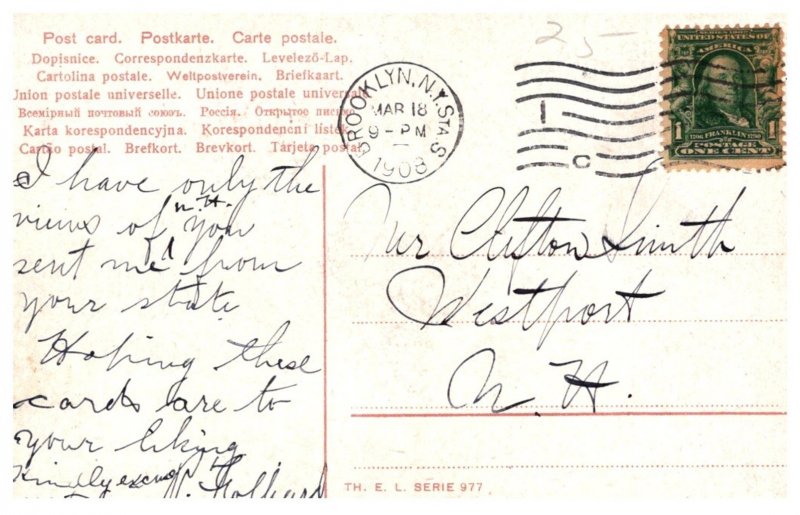 Post card. Postkarte. Carte postale.
Dopisnice. Correspondenzkarte. Levelező-Lap.
Cartolina postale. Weltpostverein. Briefkaart.
Union postale universelle. Unione postale universale
Всемірный почтовый союзъ. Россія. Открытое письмо
Karta korespondencyjna. Korespondenční lístek
Cartão postal. Brefkort. Brevkort. Tarjeta postal
25-
BROOKLYN, N.Y. STA S
MAR 18
9-PM
1908
1
C
SERIES 1902
UNITED STATES OF
AMERICA
1706 FRANKLIN 1790
1 POSTAGE 1
ONE CENT
I have only the
views of N.H. you
sent me from
your state
Hoping these
cards are to
your liking
Kindly excuse
Clifton Smith
Westport
N. H.
TH. E. L. SERIE 977